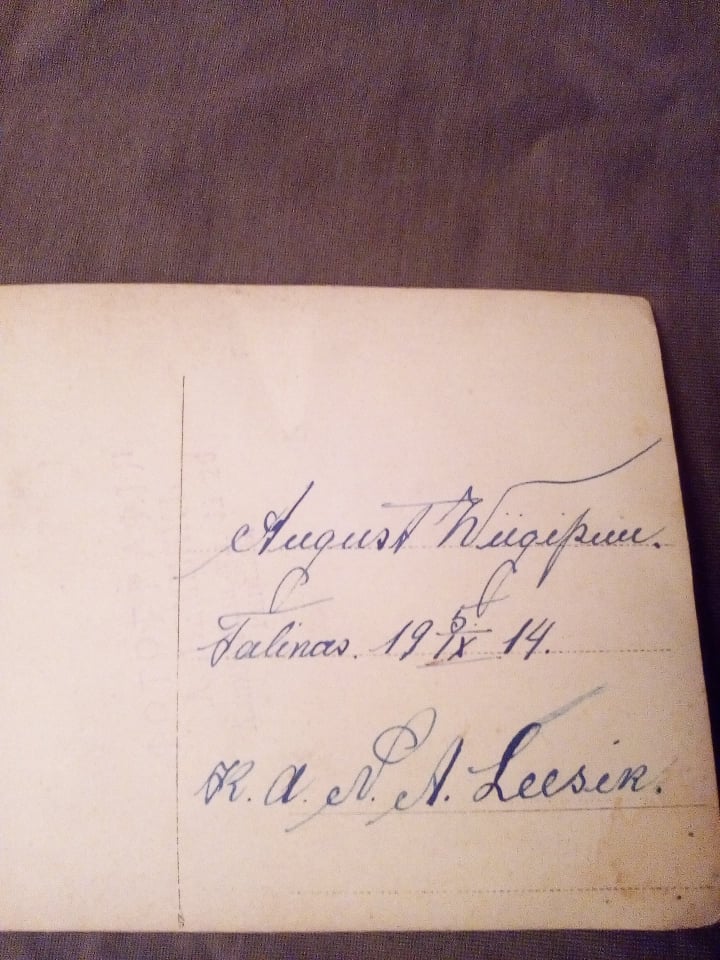 August Wiigipuu.
Talinas. 19 5/IX 14.
K. A. N. A. Leesik.